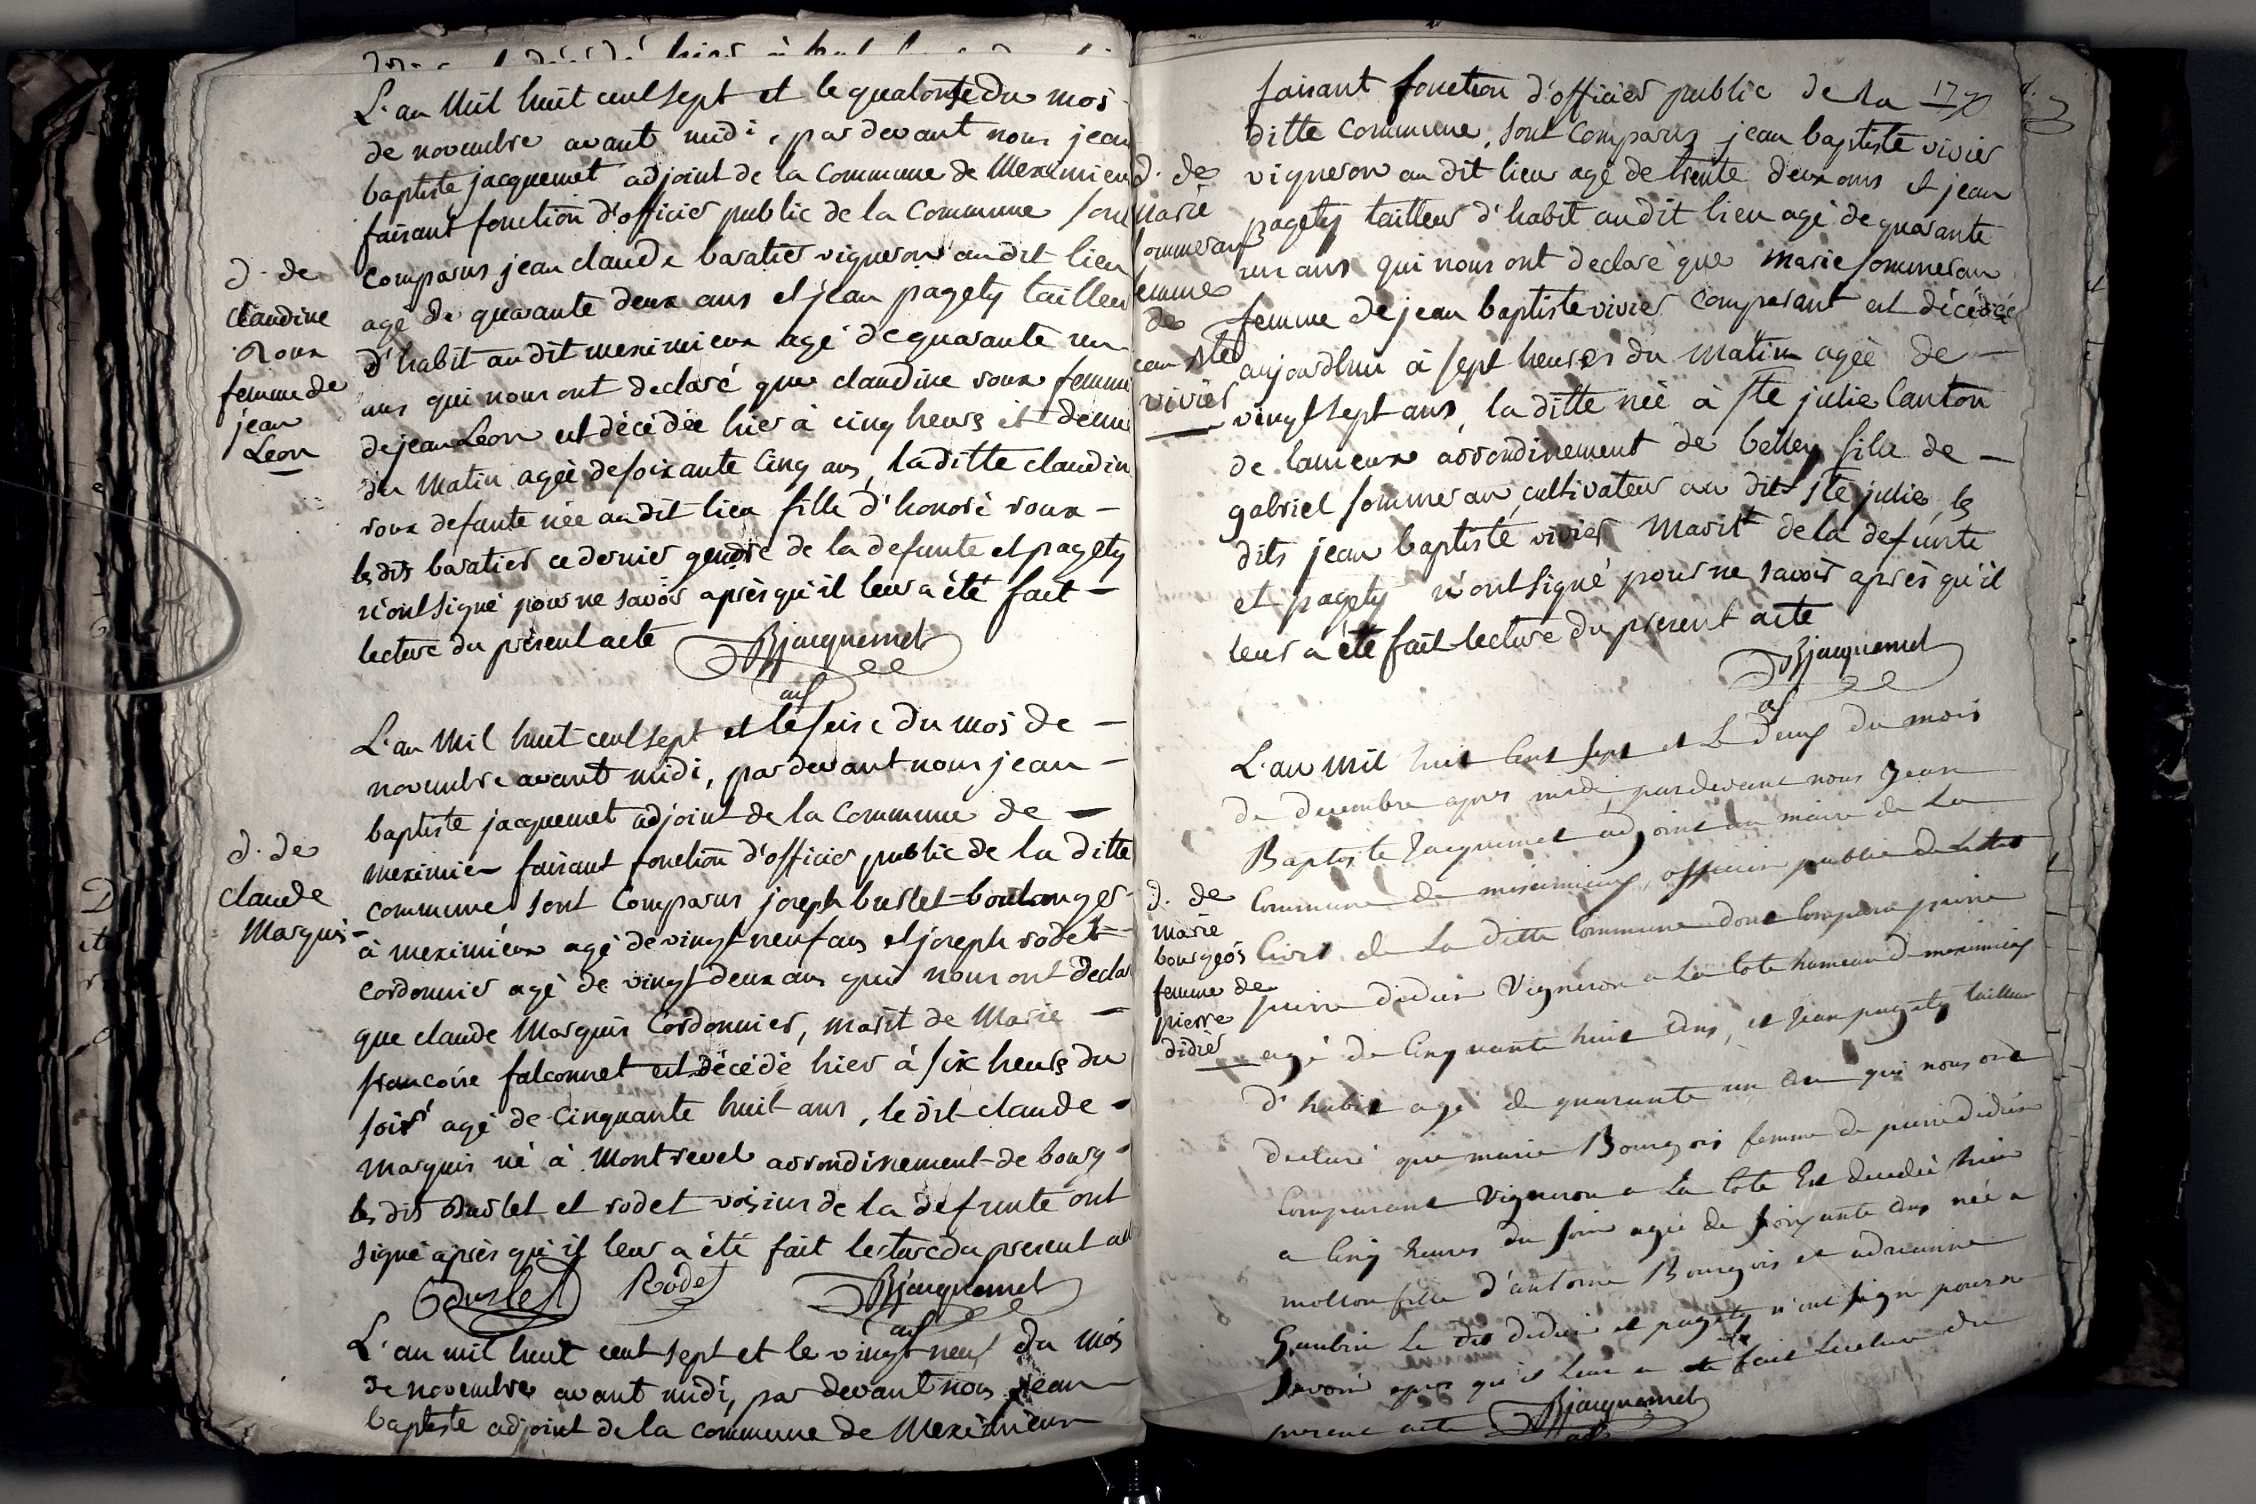 L'an mil huit cent sept et le quatorse du mois
de novembre avant midi, par devant nous jean
baptiste jacquemet adjoint de la commune de Meximieu
faisant fonction d'officier public de la commune sont
comparus jean claude baratier vigneron audit lieu
agé de quarante deux ans et jean pagety tailleu
d'habit audit meximieux agé de quarante un
ans qui nous ont declaré que claudine roux femme
de jean Leon est décédée hier à cinq heurs et demi
du matin agée de soixante cinq ans, laditte claudin
roux defunte née audit lieu fille d'honoré roux -
lesdits baratier ce dernier gendre de la defunte et pagety
n'ont signé pour ne savoir après qu'il leur a été fait -
lecture du présent acte BJjacquemet
adj
d. de
claudine
Roux
femme de
jean
Leon
L'an mil huit cent sept et le seise du mois de -
novembre avant midi, par devant nous jean -
baptiste jacquemet adjoint de la commune de -
meximieu faisant fonction d'officier public de la ditte
commune sont comparus joseph burlet boulanger
à meximieux agé de vingt neuf ans et joseph rodet
cordonnier agé de vingt deux ans qui nous ont declar
que claude Marquis cordonnier, marit de Marie -
francoise falconnet est décédé hier à six heurs du
soir agé de cinquante huit ans, le dit claude -
marquis né à Montrevel arrondissement de bourg -
les dits Burlet et rodet voisins de la defunte ont
signé après qu'il leur a été fait lecture du present act
Burlet Rodet BJjacquemet
adj
d. de
claude
Marquis -
L'an mil huit cent sept et le vingt neuf du mois
de novembre avant midi, par devant nous jean
baptiste adjoint de la commune de Meximieux
faisant fonction d'officier public de la 17
ditte commune, sont comparus jean baptiste vivier
vigneron au dit lieu agé de trente deux ans et jean
pagety tailleur d'habit audit lieu agé de quarante
un ans qui nous ont declaré que marie sommeran
femme de jean baptiste vivier comparant est décédée
aujourdhui à sept heures du matin agée de -
vingt sept ans, la ditte née à ste julie Canton
de lanieux arrondissement de belley fille de -
gabriel sommeran cultivateur au dit ste julie, les
dits jean baptiste vivier marit de la defunte
et pagety n'ont signé pour ne savoir après qu'il
leur a été fait lecture du present acte
BJjacquemet
adj
d. de
marie
sommeran
femme
de
jean Bte
vivier
L'an mil huit cent sept et le deux du mois
de decembre apres midi, pardevant nous Jean
Baptiste Jacquemet adjoint au maire de La
Commune de meximieux, officier public de Letat
Civil de La ditte Commune dont Comparu pierre
pierre didier Vigneron a La Cote hameau de meximieux
agé de Cinquante huit ans, et Jean pagety tailleur
d'habit agé de quarante un an qui nous ont
declaré que marie Bourgois femme de pierre didier
Comparant Vigneron a La Cote Est decedée hier
a Cinq heures du soir agée de soixante ans née a
mollon fille d'antoine Bourgois et adrianne
Gaubin Le dit didier et pagety n'ont signe pour ne
savoir apres qu'il leur a été fait Lecture du
present acte BJjacquemet
adj
d. de
marie
bourgeois
femme de
pierre
didier